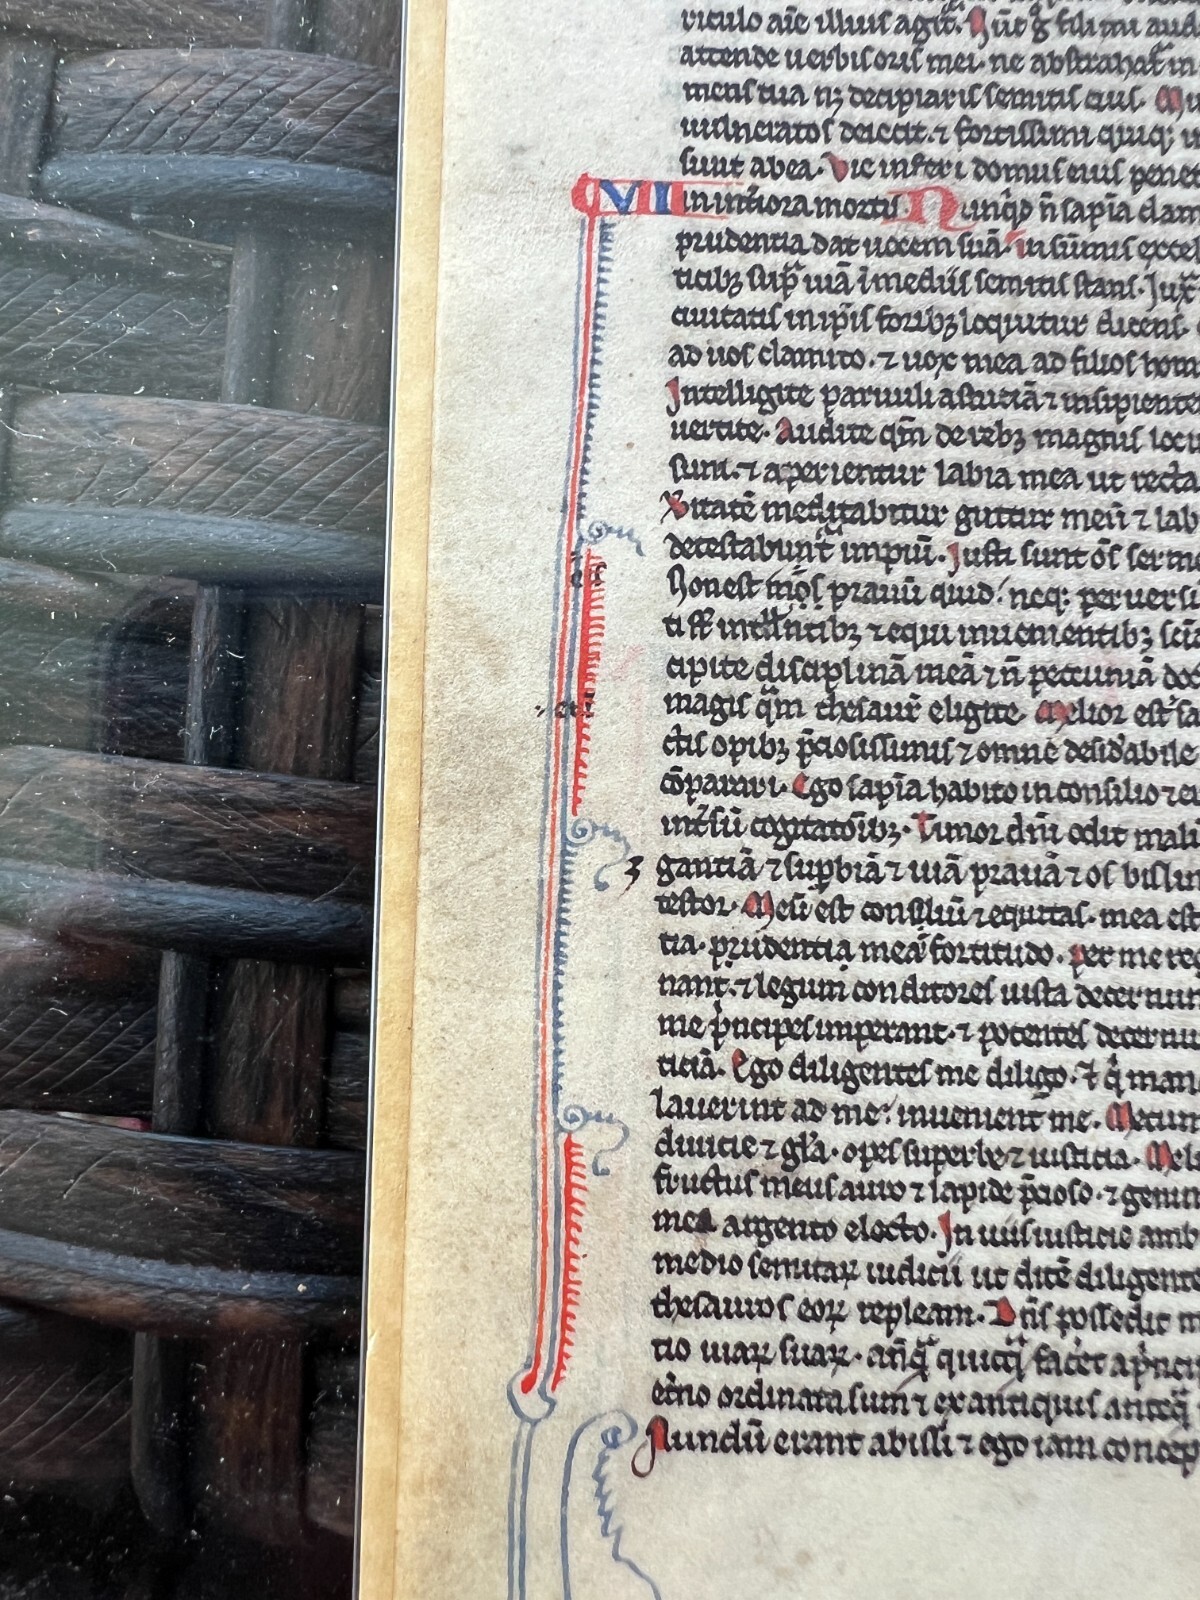 riculo aīe illius agit̄. Nūc g̊ fili mi aud
attende uerbis oris mei. ne abstrahat̄ in
mens tua nꝫ decipiaris semitis eius. Mu
uulneratos deiecit. ⁊ fortissimi quiqꝫ
sunt ab ea. Vie inferi domus eius penet
VI
in int̄iora mortis. Nunqͥd n̄ sapīa clam
prudentia dat uocem suā. in sūmis excel
ticibꝫ sup̄ uiā ī mediis semitis stans. Iux
ciuitatis in ip̄is foribꝫ loquitur dicens.
ad uos clamito. ⁊ uox mea ad filios hom
Intelligite paruuli astutiā ⁊ insipiente
uertite. Audite qm̄ de rebꝫ magnis locu
sum. ⁊ aperientur labia mea ut recta
Vͥitatē meditabitur guttur meū ⁊ lab
detestabunt̄ impiū. Iusti sunt oēs serme
Non est in oīs prauū quid. neqꝫ peruersu
ti sꝭt int̄ll̄ntibꝫ ⁊ equi inuenientibꝫ sciē
cipite disciplinā meā ⁊ n̄ pecuniā doc
magis qͣm thesaur̄ eligite. Melior est sa
ctis opibꝫ p̄ciosissimis ⁊ omne desid̄abile
cōparari. Ego sapīa habito in consilio ⁊ er
int̄sū cogitatōibꝫ. Timor dn̄i odit malū
gantiā ⁊ sup̄biā ⁊ uiā prauā ⁊ os bilin
testor. Meū est consiliū ⁊ equitas. mea est
tia. prudentia mea ē fortitudo. per me reg
nant. ⁊ legum conditores iusta decernun
me pͥncipes imperant. ⁊ potentes decernu
ticiā. Ego diligentes me diligo. ⁊ qͥ man
lauerint ad me. inuenient me. Mecum
diuicie ⁊ gl̄a. opes superbe ⁊ iusticia. Meli
fructus meus auro ⁊ lapide p̄cioso. ⁊ genim
mea argento electo. In uiis iusticie amb
medio semitaꝝ iudicii ut ditē diligente
thesauros eoꝝ repleam. Dn̄s possedit m
tio uiaꝝ suaꝝ. an̄qͣ quicqͣ facēt a pͥnci
et̄no ordinata sum ⁊ ex antiquis anteqͣ
Nundū erant abissi ⁊ ego iam concep